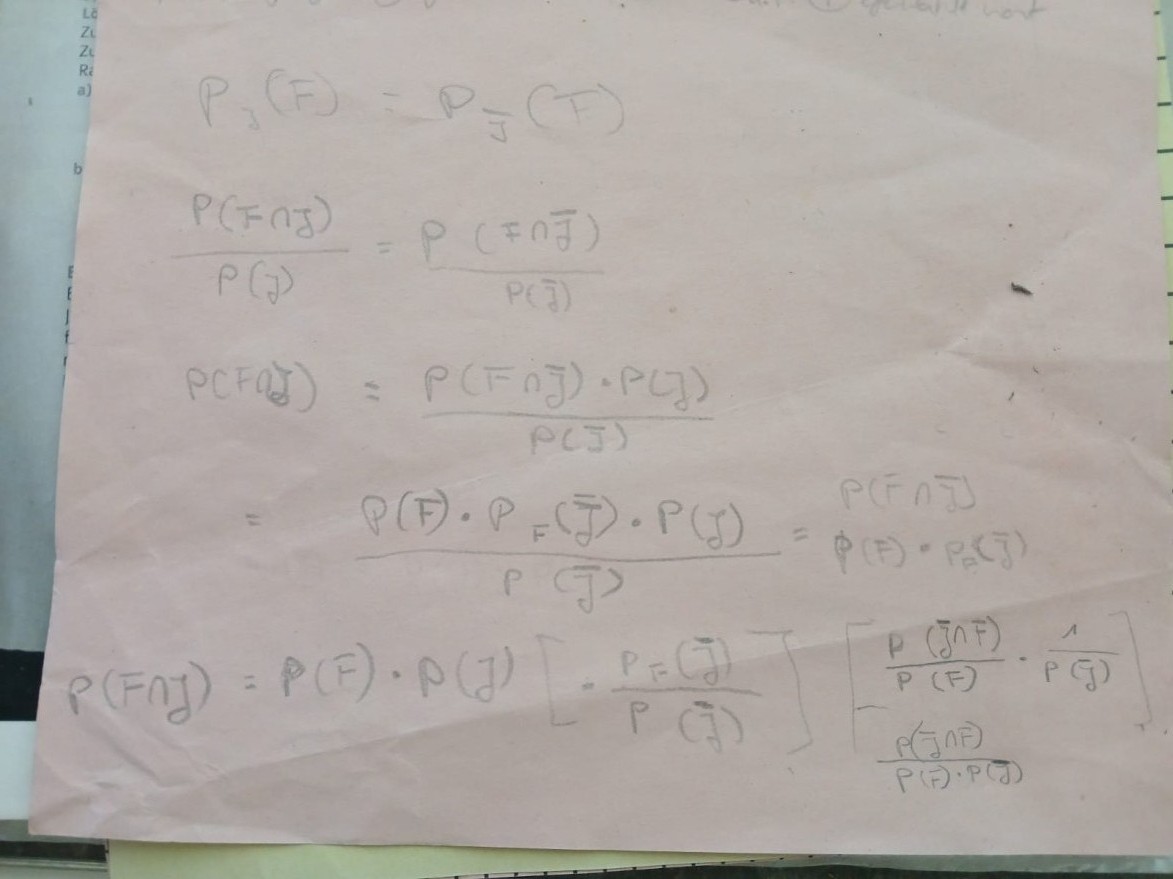 Lö
Zu
Zu
Ra
a)
b
P_J(F) = P_J̅(F)
P(F∩J) / P(J) = P(F∩J̅) / P(J̅)
P(F∩J) = P(F∩J̅)·P(J) / P(J̅)
= P(F)·P_F(J̅)·P(J) / P(J̅) = P(F∩J̅)
P(F)·P_F(J̅)
P(F∩J) = P(F)·P(J) [· P_F(J̅) / P(J̅)] [P(J̅∩F) / P(F) · 1 / P(J̅)]
P(J̅∩F) / P(F)·P(J̅)